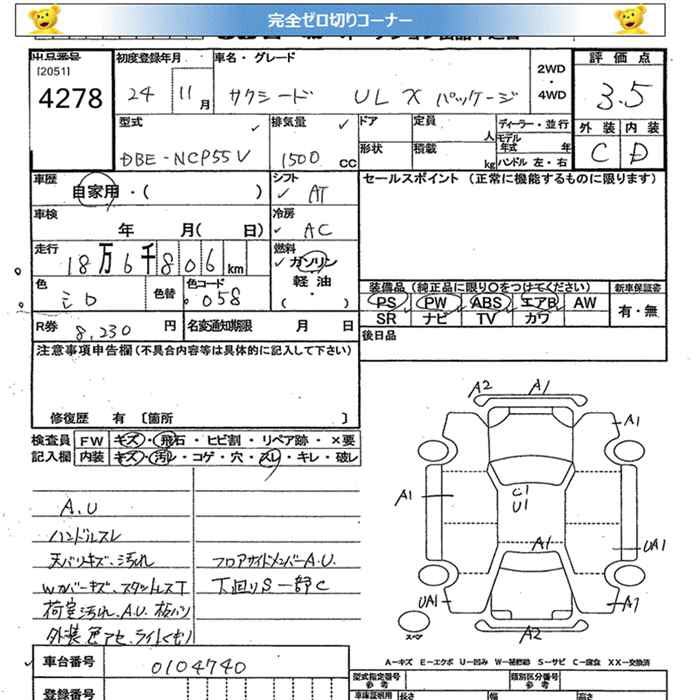 完全ゼロ切りコーナー
出品番号
[2051]
4278
初度登録年月
24 11月
車名・グレード
サクシード UL X パッケージ
2WD
・
4WD
評価点
3.5
外装 内装
C D
型式
DBE-NCP55V
排気量
1500 CC
ドア 定員 人
形状 積載 kg
ディーラー・並行
モデル
年式 年
ハンドル 左・右
車歴
自家用・( )
シフト
AT
セールスポイント (正常に機能するものに限ります)
車検
年 月( 日)
冷房
AC
走行
18万6千806km
燃料
ガソリン
軽油
( ・ )
色
シロ
色替
色コード
058
装備品(純正品に限り○をつけてください)
PS PW ABS エアB AW
SR ナビ TV カワ
新車保証書
有・無
R券 8,230 円
名変通知期限 月 日
後日品
注意事項申告欄(不具合内容等は具体的に記入して下さい)
修復歴 有 〔箇所 〕
検査員
記入欄
FW キズ・飛石・ヒビ割・リペア跡・×要
内装 キズ・汚レ・コゲ・穴・スレ・キレ・破レ
A.U
ハンドルスレ
天バリキズ、汚れ
Wカバーキズ、スタットレスT
荷室汚れ、A.U
外装色アセ、ライトくもり
フロアサイドメンバーA.U.
下廻りS一部C
A2 A1
A1
A1
C1
U1
A1
UA1
UA1
A1
A2
スペア
A-キズ E-エクボ U-凹み W-補修跡 S-サビ C-腐食 XX-交換済
車台番号
0104740
登録番号
型式指定番号
参考
類別区分番号
参考
車庫証明用 長さ 幅 高さ